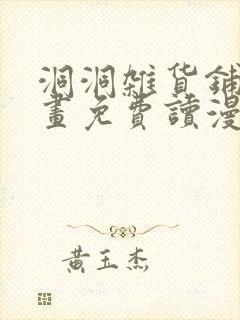 洞洞雜貨鋪
畫免費讀漫
黃玉杰